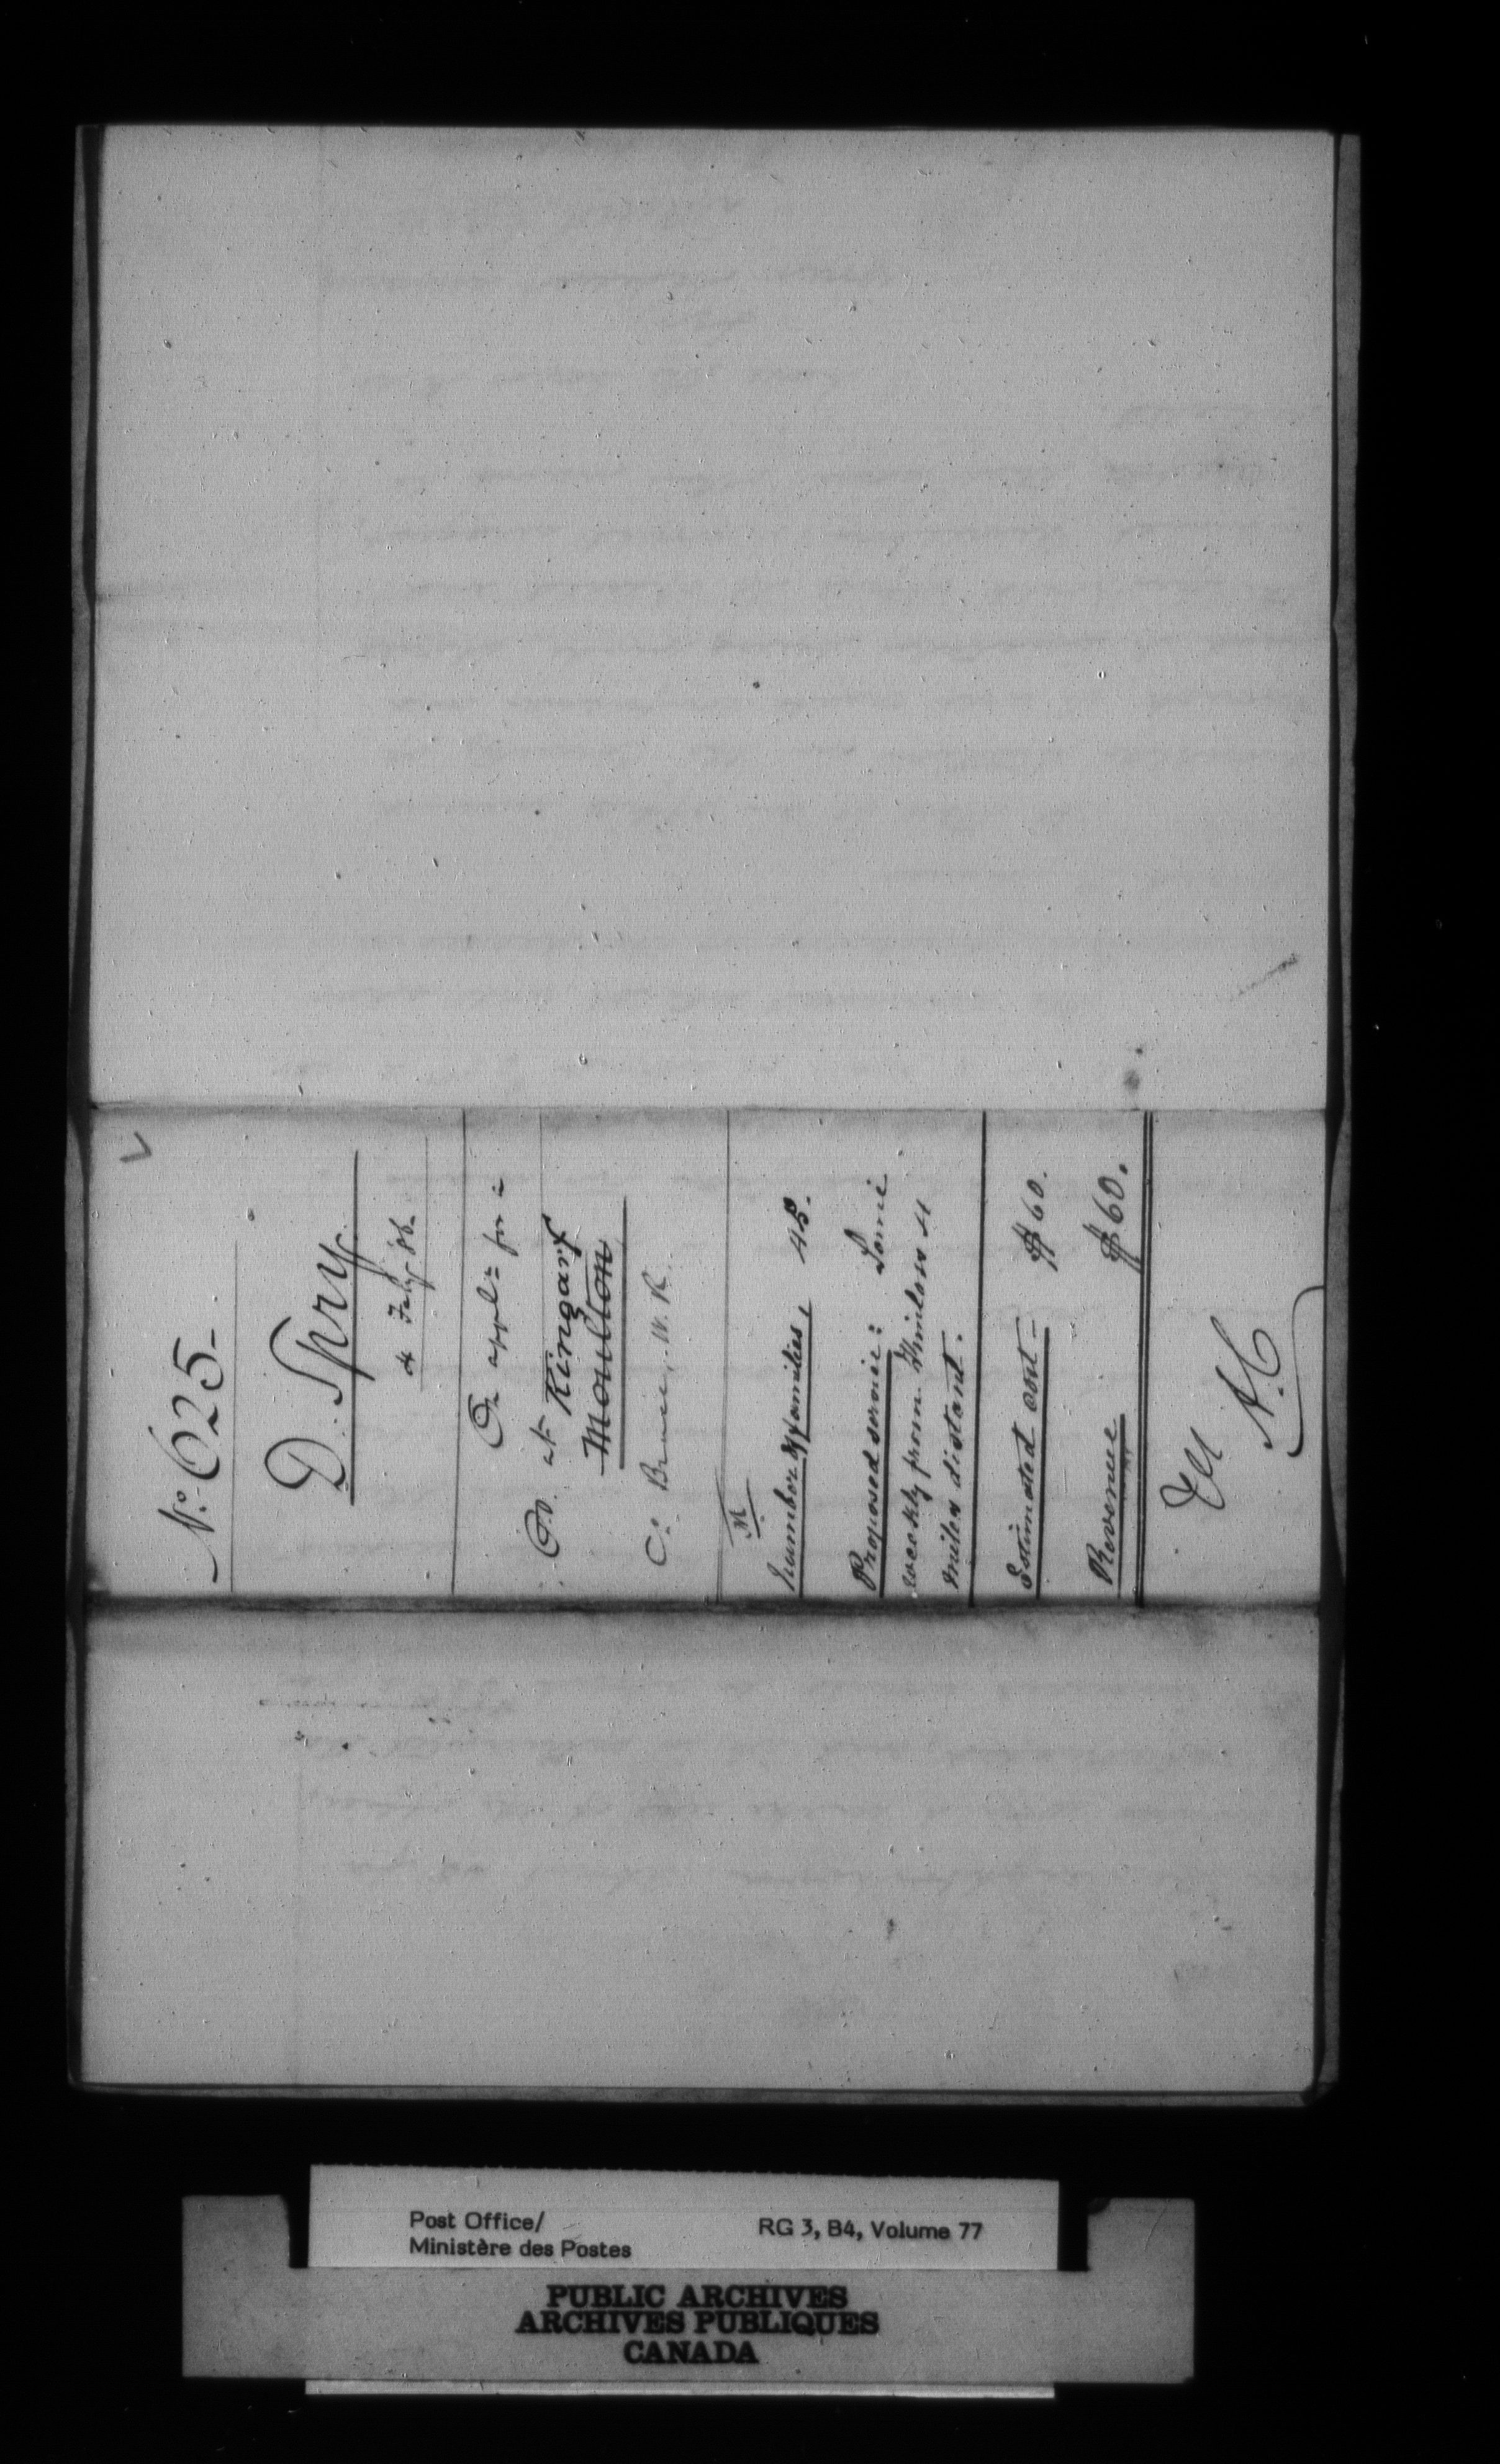 No. 625-
D. Spry.
4 Feby 86.
On appl= for a
P.O. at Kingarf
Moulton
Co. Bruce, W.R.
M
Number of families, 45.
Proposed service: Semi
weekly from 4
miles distant.
Estimated cost- $60.
Revenue $60.
Post Office/
Ministère des Postes
RG 3, B4, Volume 77
PUBLIC ARCHIVES
ARCHIVES PUBLIQUES
CANADA